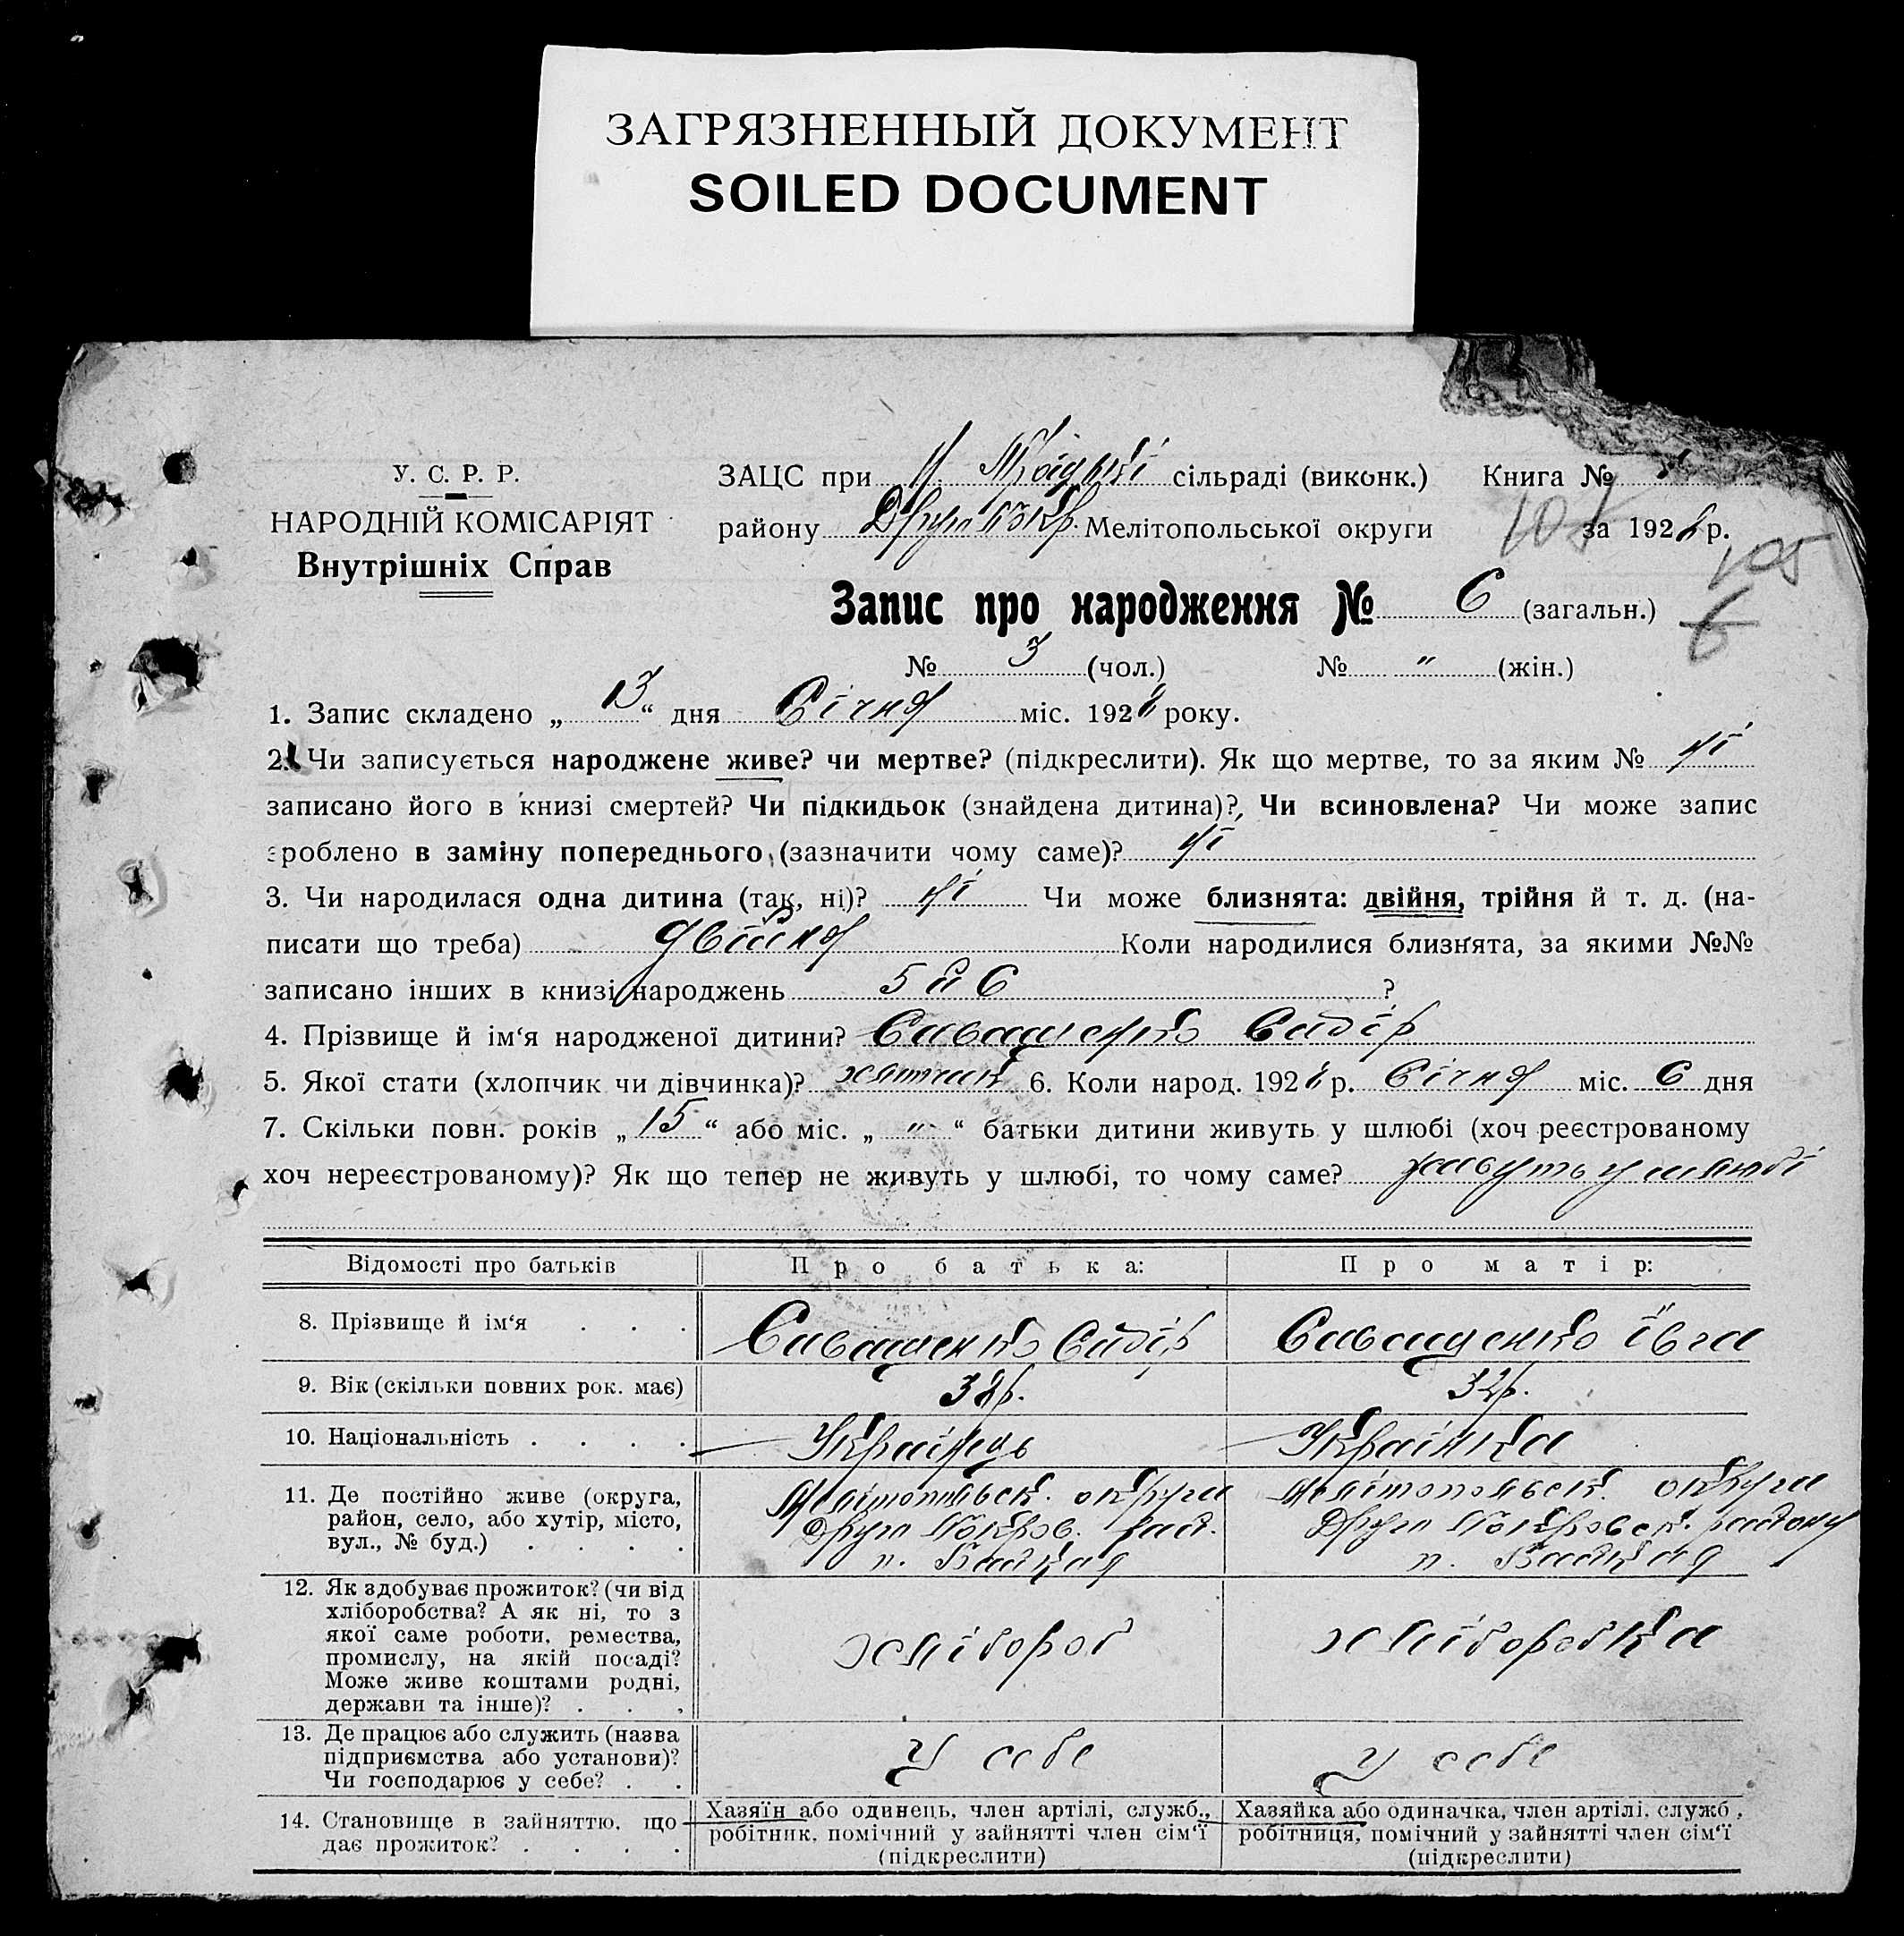 ЗАГРЯЗНЕННЫЙ ДОКУМЕНТ
SOILED DOCUMENT
У. С. Р. Р.
НАРОДНІЙ КОМІСАРІЯТ
Внутрішніх Справ
ЗАЦС при Н. Троїцькій сільраді (виконк.) Книга №
району Друго Покр. Мелітопольської округи за 192 р.
105
Запис про народження № 6 (загальн.)
6
№ 3 (чол.) № " (жін.)
1. Запис складено „ 13 “ дня Січня міс. 192 року.
2. Чи записується народжене живе? чи мертве? (підкреслити). Як що мертве, то за яким № ні
записано його в книзі смертей? Чи підкидьок (знайдена дитина)?, Чи всиновлена? Чи може запис
зроблено в заміну попереднього, (зазначити чому саме)? ні
3. Чи народилася одна дитина (так, ні)? ні Чи може близнята: двійня, трійня й т. д. (на-
писати що треба) двійня Коли народилися близнята, за якими №№
записано інших в книзі народжень 5 й 6 ?
4. Прізвище й ім‘я народженої дитини? Сиващенко Сидір
5. Якої стати (хлопчик чи дівчинка)? хлопчик 6. Коли народ. 192 р. Січня міс. 6 дня
7. Скільки повн. років „ 15 “ або міс. „ " “ батьки дитини живуть у шлюбі (хоч реєстрованому
хоч нереєстрованому)? Як що тепер не живуть у шлюбі, то чому саме? живуть у шлюбі
Відомості про батьків Про батька: Про матір:
8. Прізвище й ім‘я . . . Сиващенко Сидір Сиващенко Ївга
9. Вік (скільки повних рок. має) 38р. 32р.
10. Національність . . . . Українець Українка
11. Де постійно живе (округа, Мелітопільськ. округи Мелітопольськ. округи
район, село, або хутір, місто, Друго Покров. рай. Друго Покровськ. району
вул., № буд.) . . . . п.
12. Як здобуває прожиток? (чи від
хліборобства? А як ні, то з
якої саме роботи, ремества, хлібороб хліборобка
промислу, на якій посаді?
Може живе коштами родні,
держави та інше)? . . .
13. Де працює або служить (назва
підприємства або установи)? У себе У себе
Чи господарює у себе? . .
14. Становище в зайняттю, що Хазяїн або одинець, член артілі, служб., Хазяйка або одиначка, член артілі, служб.,
дає прожиток? . . . . робітник, помічний у зайнятті член сім‘ї робітниця, помічний у зайнятті член сім‘ї
(підкреслити) (підкреслити)